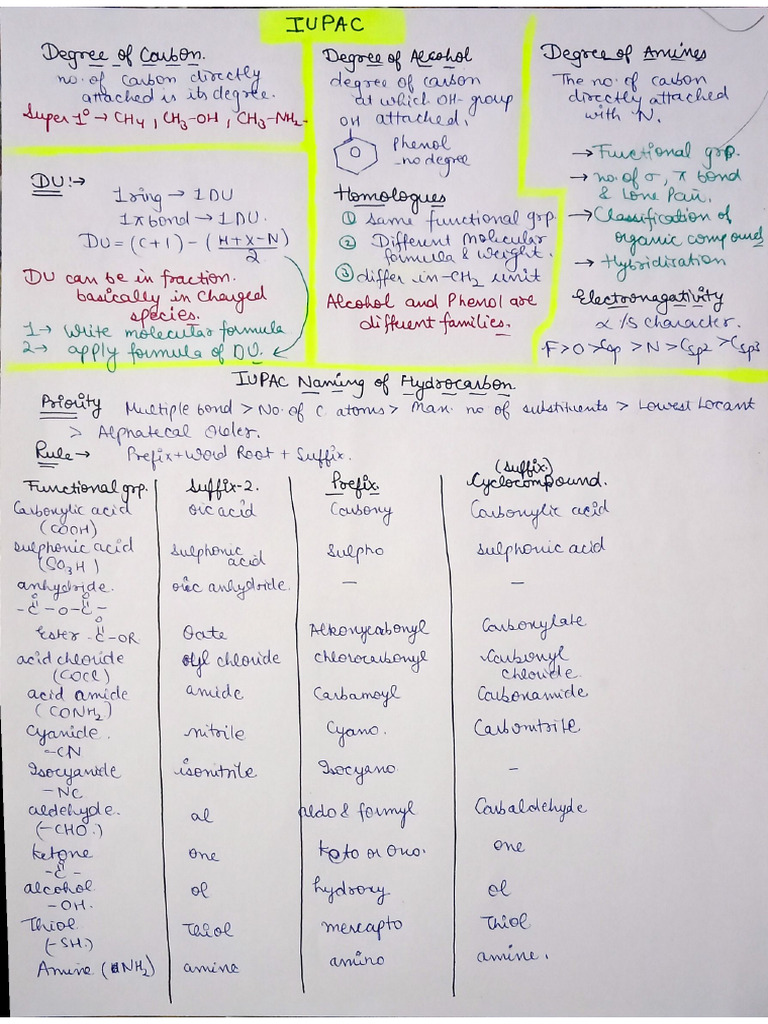 IUPAC
Degree of Carbon.
no. of carbon directly
attached is its degree.
Super 1° → CH4, CH3-OH, CH3-NH2.
DU :→
1 ring → 1 DU
1π bond → 1 DU.
DU = (C+1) - (H+X-N)
2
DU can be in fraction.
basically in Charged
species.
1 → Write molecular formula
2 → apply formula of DU.
Degree of Alcohol
degree of carbon
at which OH- group
attached.
OH
Phenol
-no degree
Homologues
① Same functional grp.
② Different Molecular
formula & weight.
③ differ in -CH2 unit
Alcohol and Phenol are
different families.
Degree of Amines
The no. of carbon
directly attached
with N.
→ Functional grp.
→ no. of σ, π bond
& Lone Pair.
→ Classification of
organic compound
→ Hybridisation
Electronagativity
∝ %S character.
F > O > Csp > N > Csp2 > Csp3
IUPAC Naming of Hydrocarbon.
Priority Multiple bond > No. of C atoms > Max. no of substituents > Lowest Locant
> Alphatecal Order.
Rule → Prefix + Word Root + Suffix.
Functional grp. Suffix-2. Prefix. (suffix) Cyclocompound.
Carboxylic acid oic acid Carboxy Carboxylic acid
(COOH)
sulphonic acid Sulphonic acid Sulpho sulphonic acid
(SO3H)
anhydride. oic anhydride. — —
O O
-C-O-C-
Ester -C-OR Oate Alkoxycarbonyl Carboxylate
O
acid chloride oyl chloride chlorocarbonyl Carbonyl chloride
(COCl)
acid amide amide Carbamoyl Carboxamide
(CONH2)
Cyanide. nitrile Cyano. Carbonitrile
-CN
Isocyanide isonitrile Isocyano —
-NC
aldehyde. al aldo & formyl Carbaldehyde
(-CHO.)
ketone one keto or Oxo. one
-C-
alcohol ol hydroxy ol
-OH.
Thiol Thiol mercapto Thiol
(-SH.)
Amine (NH2) amine amino amine.